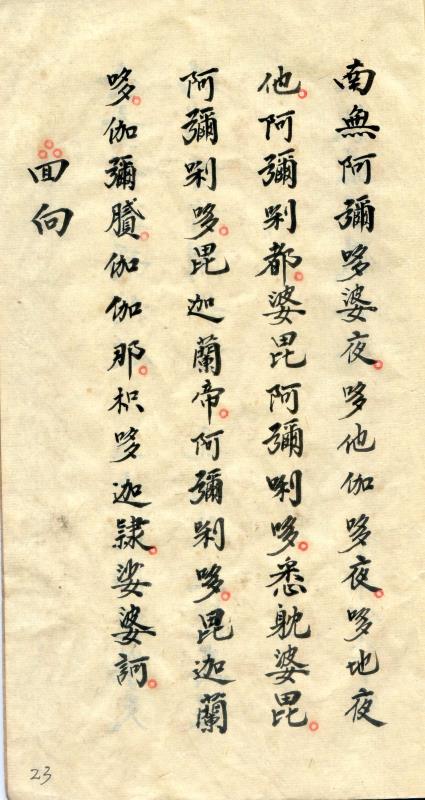 南無阿彌哆婆夜。哆他伽哆夜。哆地夜
他。阿彌唎都。婆毘阿彌唎哆。悉躭婆毘。
阿彌唎哆。毘迦蘭帝。阿彌唎哆。毘迦蘭
哆。伽彌膹。伽伽那。枳哆迦隸。娑婆訶。
回向
23